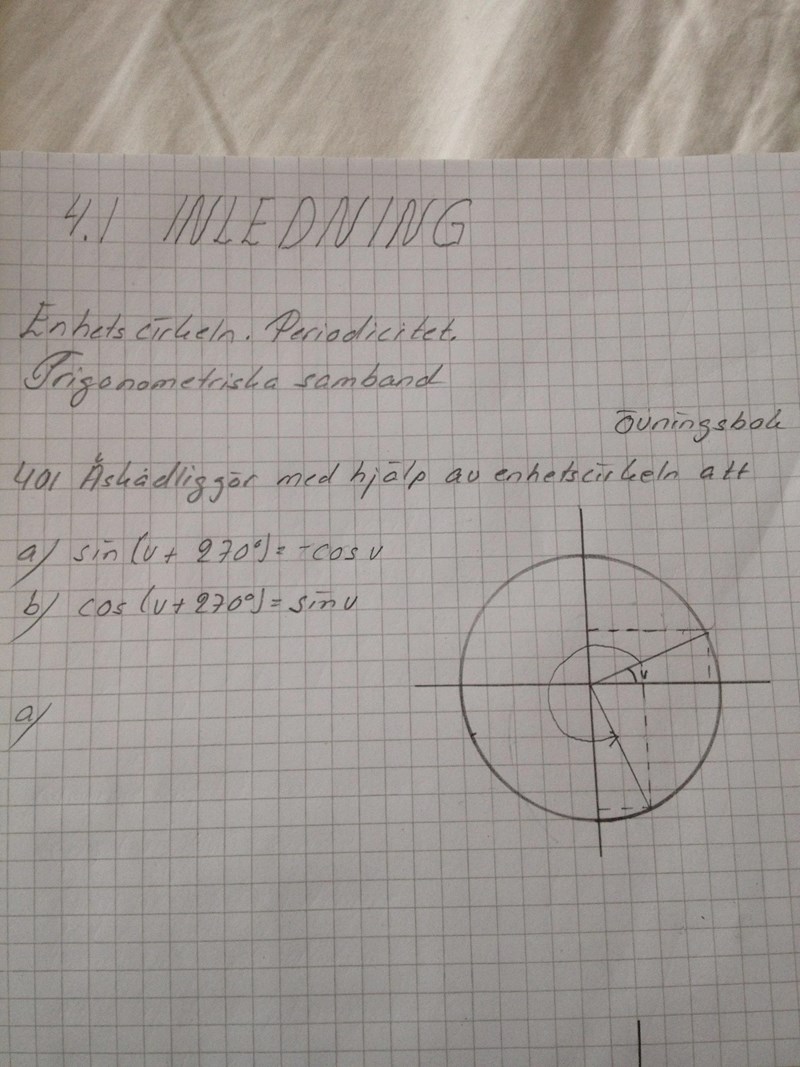 4.1 INLEDNING
Enhetscirkeln. Periodicitet.
Trigonometriska samband
Övningsbok
401 Åskådliggör med hjälp av enhetscirkeln att
a) sin (v + 270°) = -cos v
b) cos (v + 270°) = sin v
v
a)